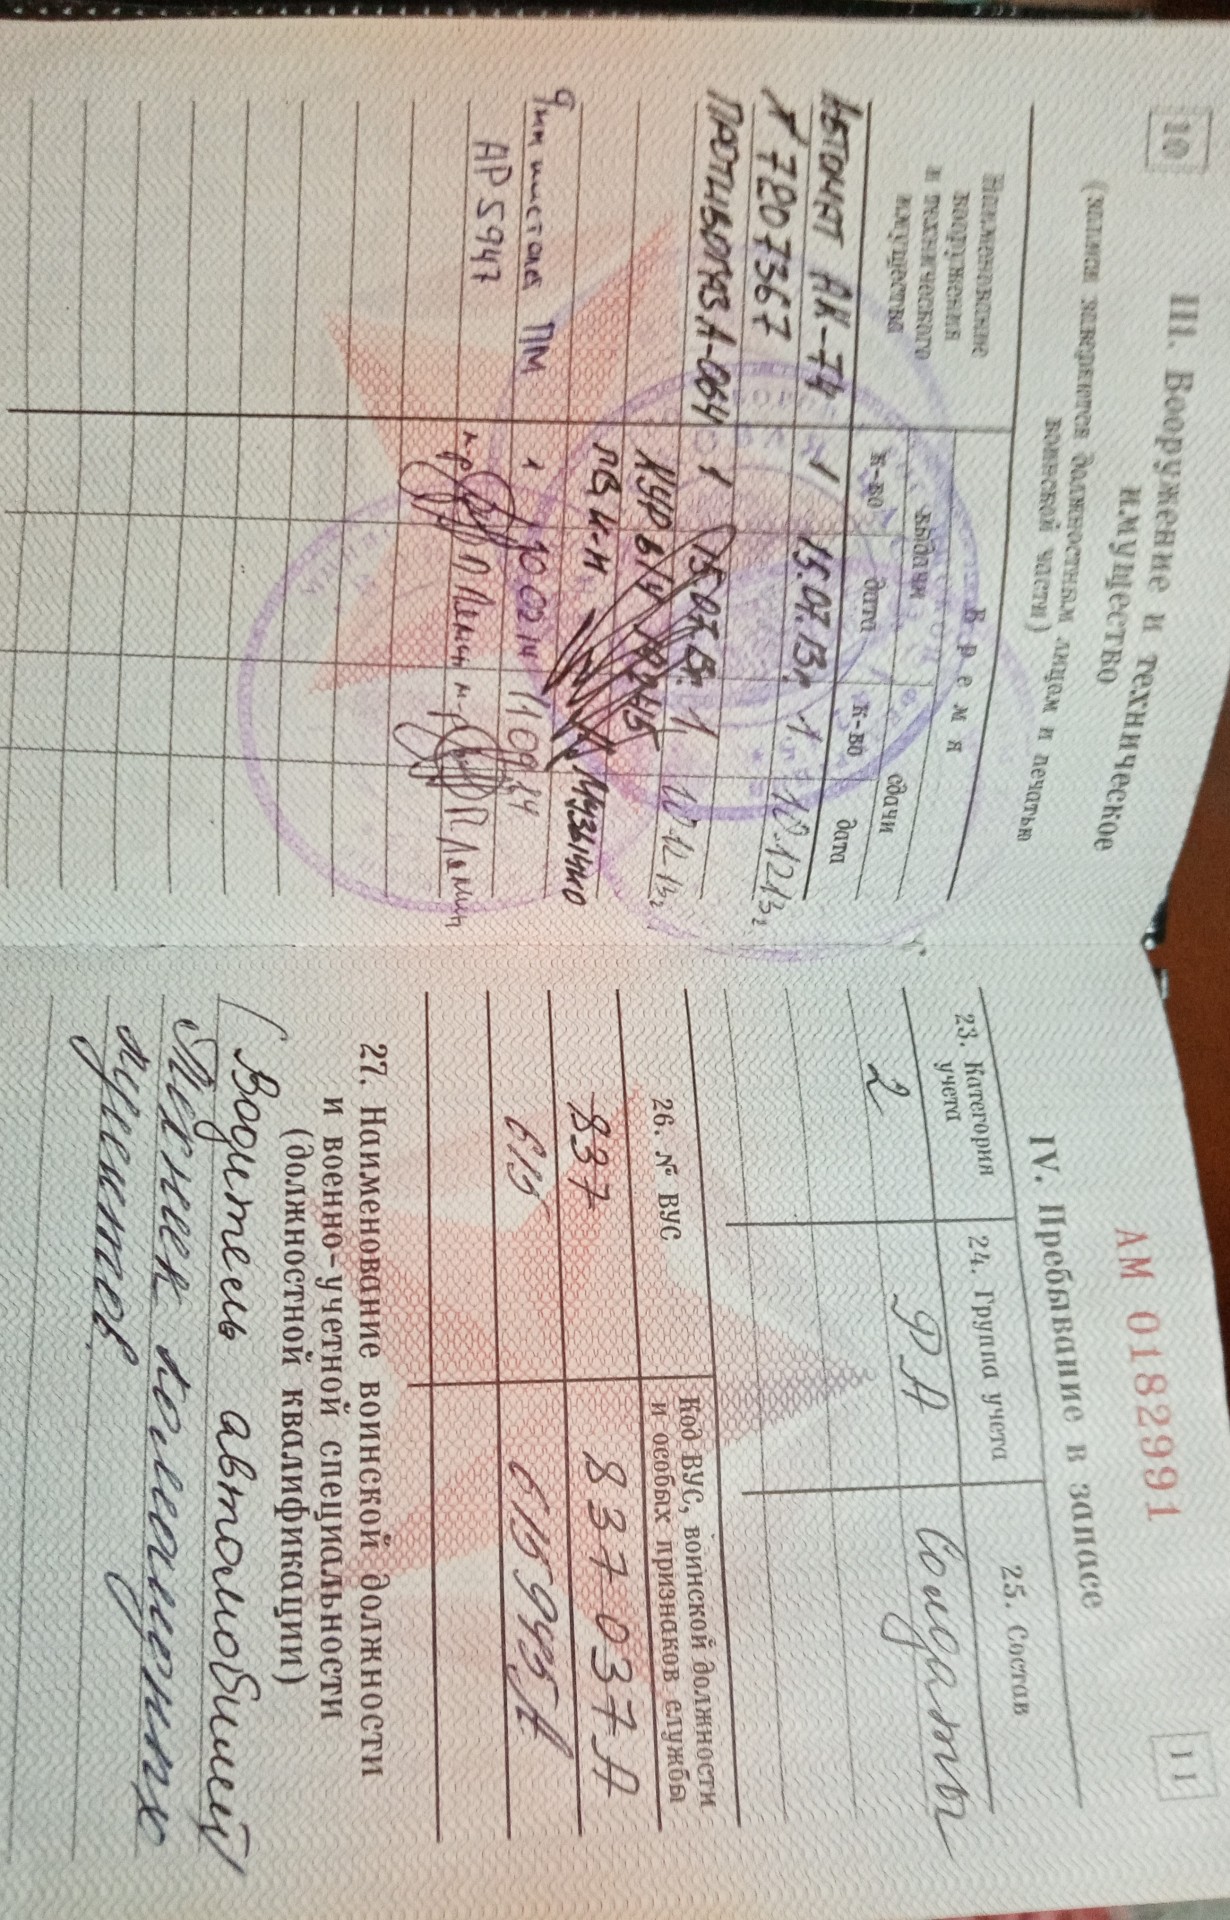 10
III. Вооружение и техническое
имущество
(записи заверяются должностным лицом и печатью
воинской части)
Наименование
вооружения
и технического
имущества
Время
выдачи
сдачи
к-во
дата
к-во
дата
АВТОМАТ АК-74 1 15.07.13г. 1. 10.12.13г
№ 7207367
ПРОТИВОГАЗ А-064 1 15.07.13г. 1. 10.12.13г
КУР в/ч
ПВ И-Н
пистолет ПМ 1 10.02.14 1 1.09.14
АР 5947
м-р П Лямин м-р П Лямин
АМ 0182991
11
IV. Пребывание в запасе
23. Категория
учета
24. Группа учета
25. Состав
2 РА Солдаты
26. № ВУС
Код ВУС, воинской должности
и особых признаков службы
837 837037А
615 615945А
27. Наименование воинской должности
и военно-учетной специальности
(должностной квалификации)
Водитель автомобилей